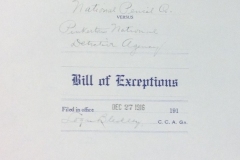 National Pencil Co.
VERSUS
Pinkerton National
Detective Agency
Bill of Exceptions
Filed in office DEC 27 1916 191
C. C. A. Co.